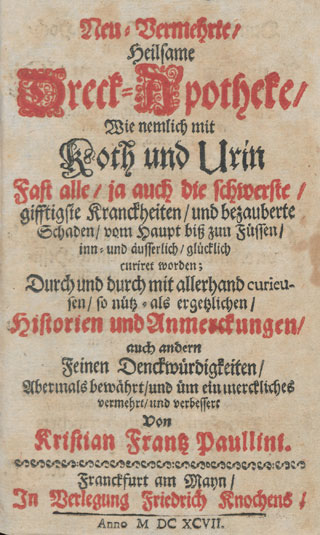 Neu-Vermehrte/
Heilsame
Dreck-Apotheke/
Wie nemlich mit
Koth und Urin
Fast alle/ ja auch die schwerste/
gifftigste Kranckheiten/ und bezauberte
Schaden/ vom Haupt biß zun Füssen/
inn- und äusserlich/ glücklich
curiret worden;
Durch und durch mit allerhand curieu-
sen/ so nütz- als ergetzlichen/
Historien und Anmerckungen/
auch andern
Feinen Denckwürdigkeiten/
Abermals bewährt/ und üm ein merckliches
vermehrt/ und verbessert
Von
Kristian Frantz Paullini.
Franckfurt am Mayn/
In Verlegung Friedrich Knochens/
Anno M DC XCVII.